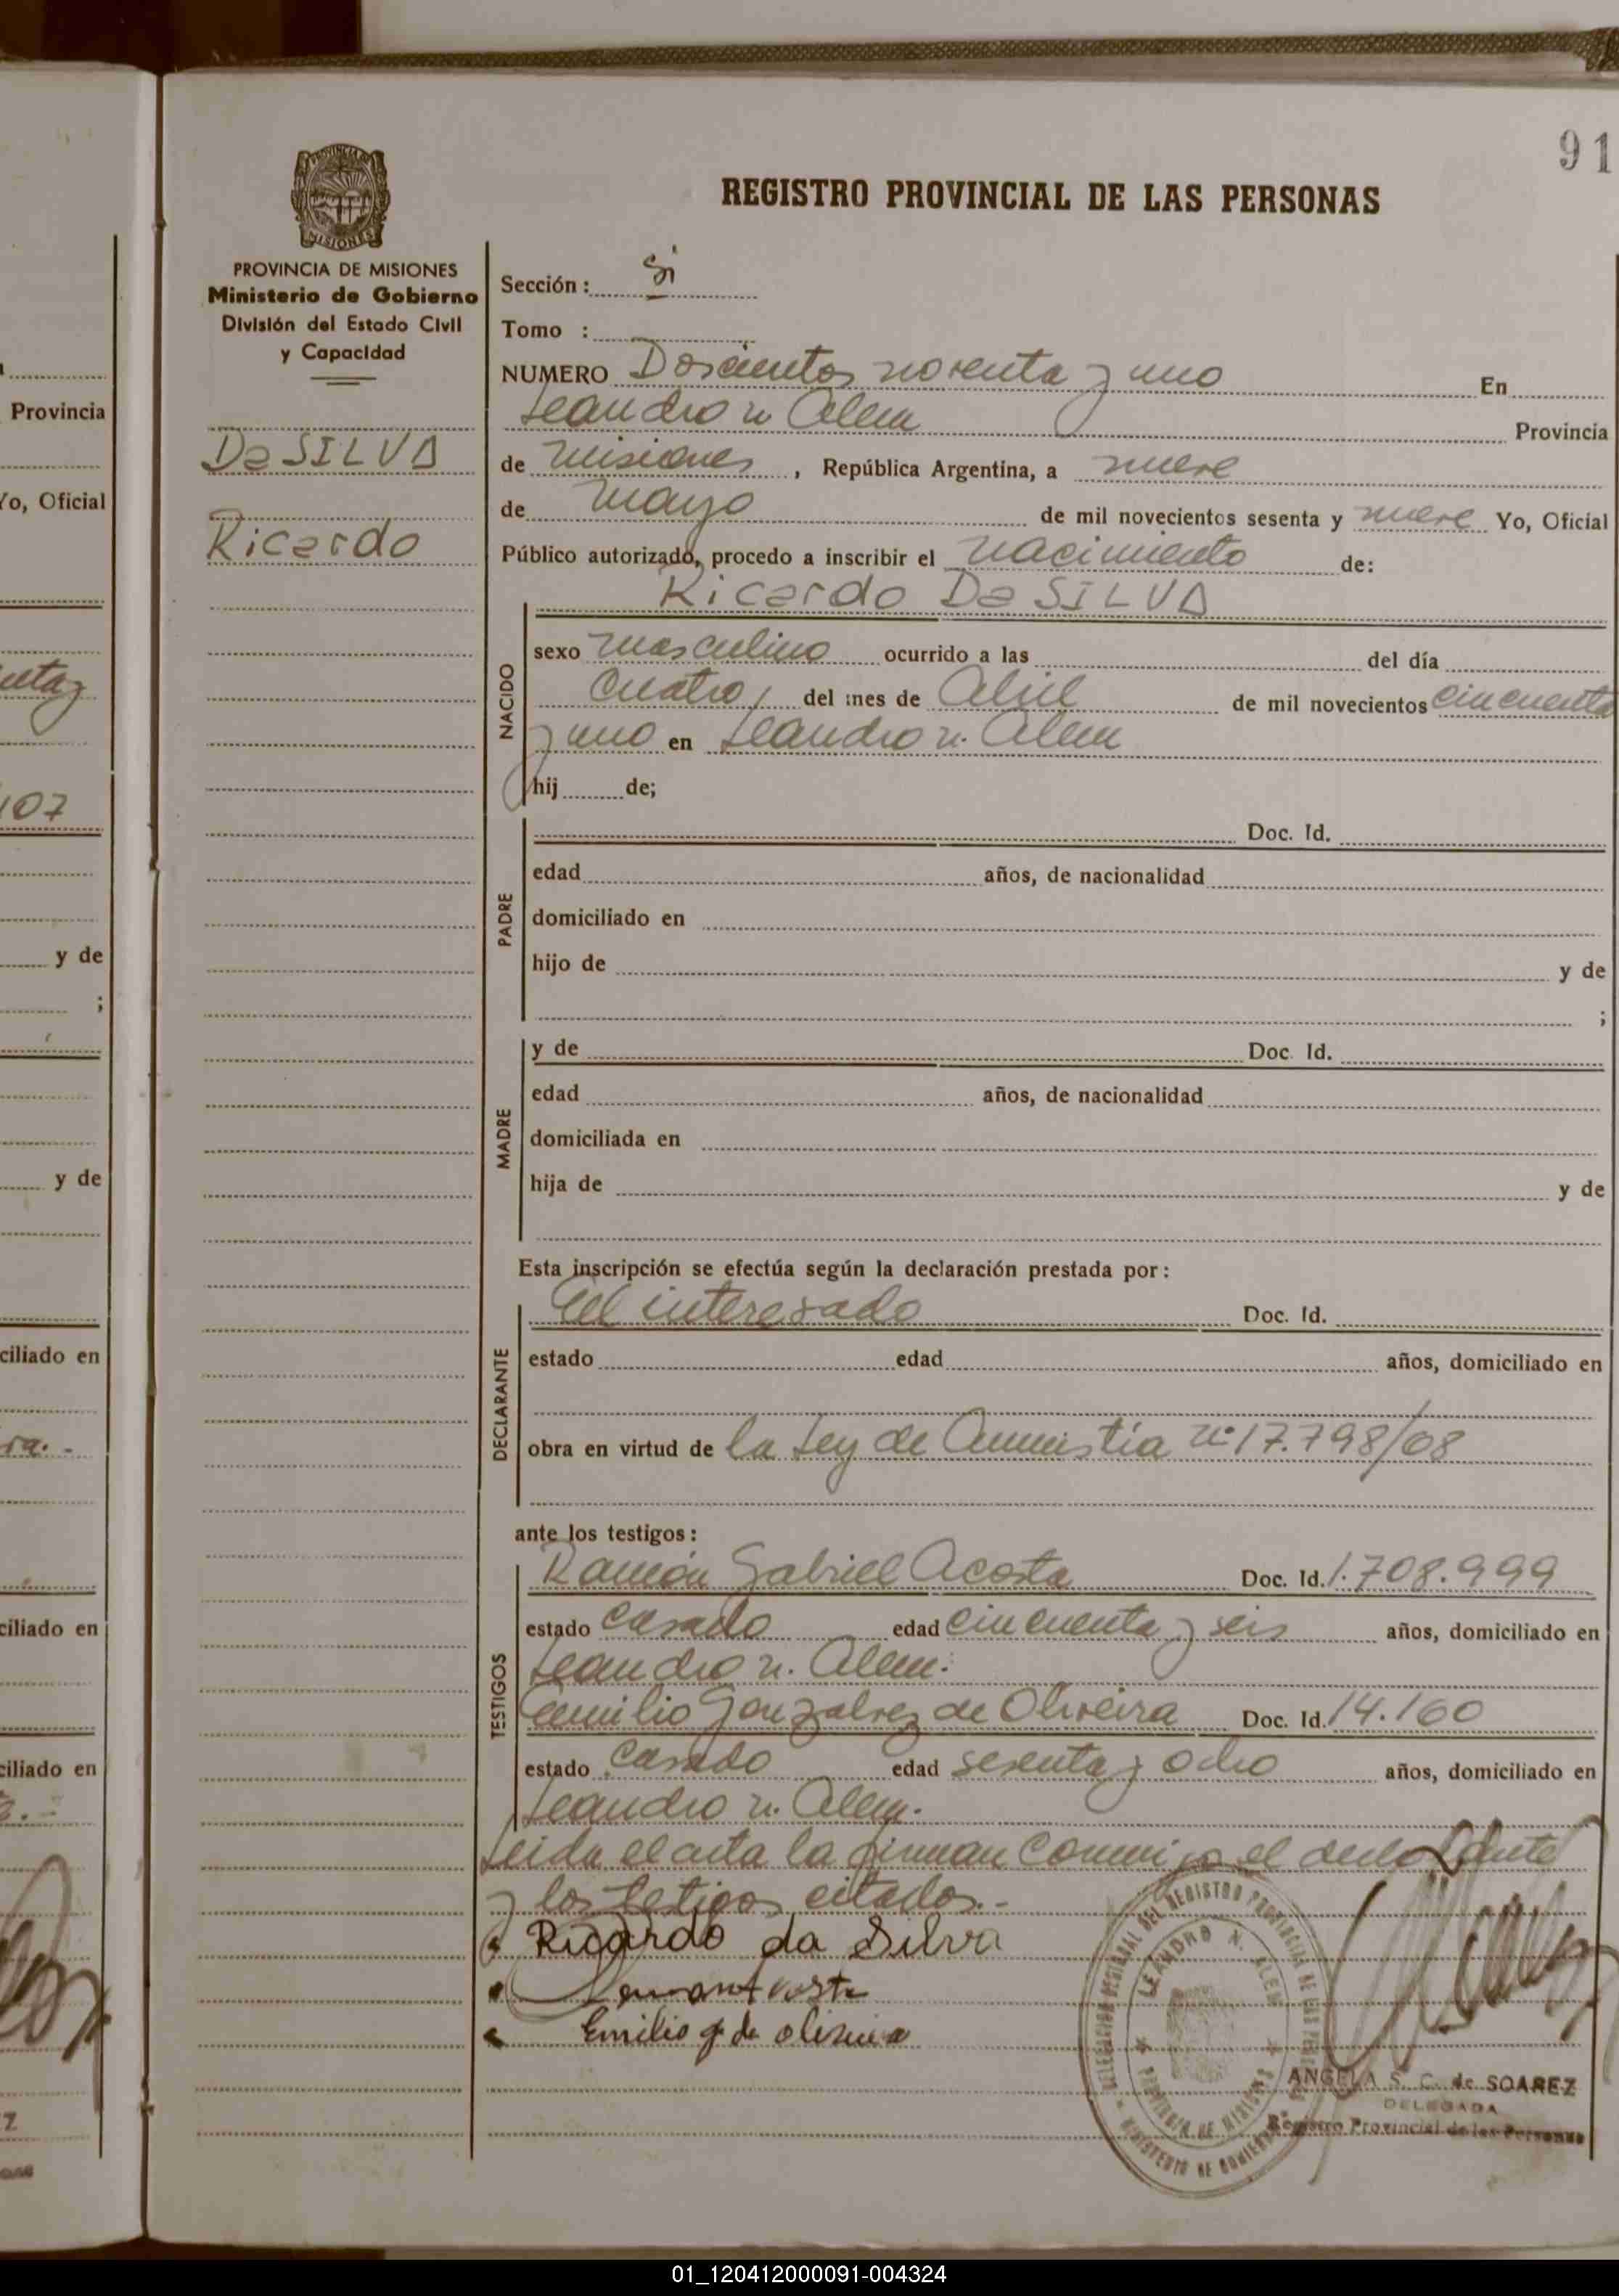 91
REGISTRO PROVINCIAL DE LAS PERSONAS
PROVINCIA DE MISIONES
PROVINCIA DE MISIONES
Ministerio de Gobierno
División del Estado Civil
y Capacidad
Da SILVA
Ricardo
Sección :
Tomo :
NUMERO Doscientos noventa y uno En
Leandro n Alem Provincia
de Misiones, República Argentina, a nueve
de mayo de mil novecientos sesenta y nueve Yo, Oficial
Público autorizado, procedo a inscribir el nacimiento de:
Ricardo Da SILVA
NACIDO
sexo masculino ocurrido a las del día
cuatro, del mes de Abril de mil novecientos cincuenta
y uno en Leandro n. Alem
hij de;
PADRE
Doc. Id.
edad años, de nacionalidad
domiciliado en
hijo de y de
;
MADRE
y de Doc. Id.
edad años, de nacionalidad
domiciliada en
hija de y de
Esta inscripción se efectúa según la declaración prestada por:
DECLARANTE
El interesado Doc. Id.
estado edad años, domiciliado en
obra en virtud de la Ley de Amnistia nº 17.798/68
ante los testigos:
TESTIGOS
Ramón Gabriel Acosta Doc. Id. 1.708.999
estado casado edad cincuenta y seis años, domiciliado en
Leandro n. Alem.
Emilio Gonzalvez de Oliveira Doc. Id. 14.160
estado casado edad sesenta y ocho años, domiciliado en
Leandro n. Alem.
Leida el acta la firman conmigo el declarante
y los testigos citados.-
Ricardo da Silva
Emilio g de oliveira
DELEGACION REGIONAL DEL REGISTRO PROVINCIAL DE LAS PERSONAS
LEANDRO N. ALEM
PROVINCIA DE MISIONES
MINISTERIO DE GOBIERNO
ANGELA S. C. de SOAREZ
DELEGADA
Registro Provincial de las Personas
Provincia
Yo, Oficial
107
y de
;
y de
ciliado en
ciliado en
ciliado en
01_120412000091-004324